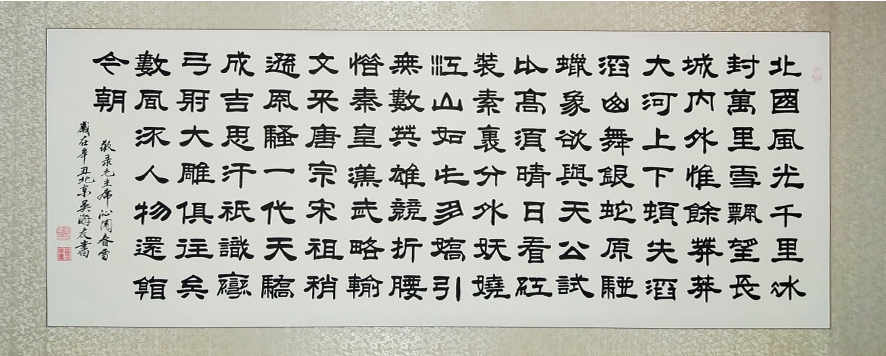 北國風光千里冰
封萬里雪飄望長
城内外惟餘莽莽
大河上下頓失滔
滔山舞銀蛇原馳
蠟象欲與天公試
比高須晴日看紅
裝素裹分外妖嬈
江山如此多嬌引
無數英雄競折腰
惜秦皇漢武略輸
文采唐宗宋祖稍
遜風騷一代天驕
成吉思汗祇識彎
弓射大雕俱往矣
數風流人物還看
今朝
敬录毛主席沁園春雪
歲在辛丑北京吴海友書